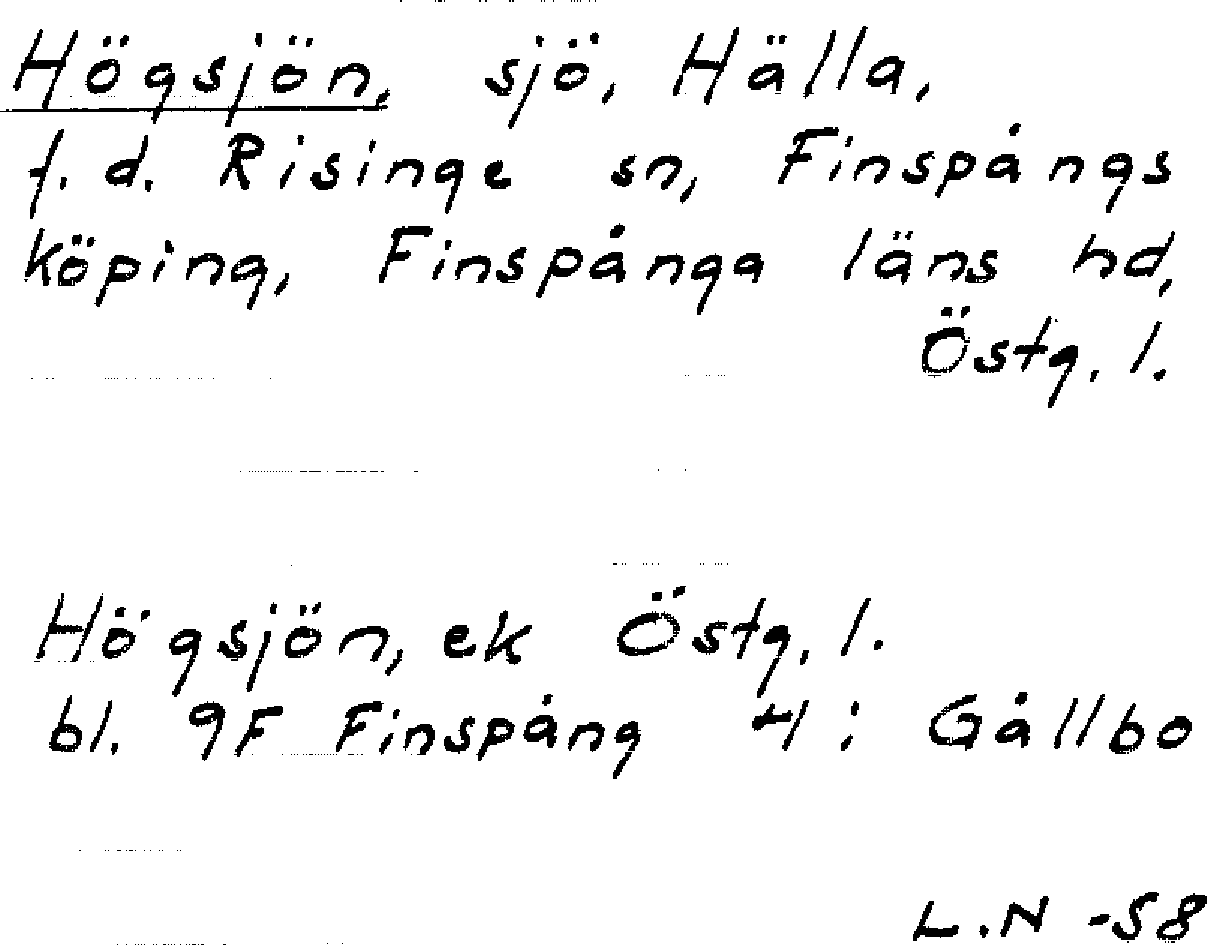 Högsjön, sjö, Hälla,
f.d. Risinge sn, Finspångs
köping, Finspånga läns hd,
Östg. l.
Högsjön, ek Östg. l.
bl. 9F Finspång 4 i Gållbo
L.N -58